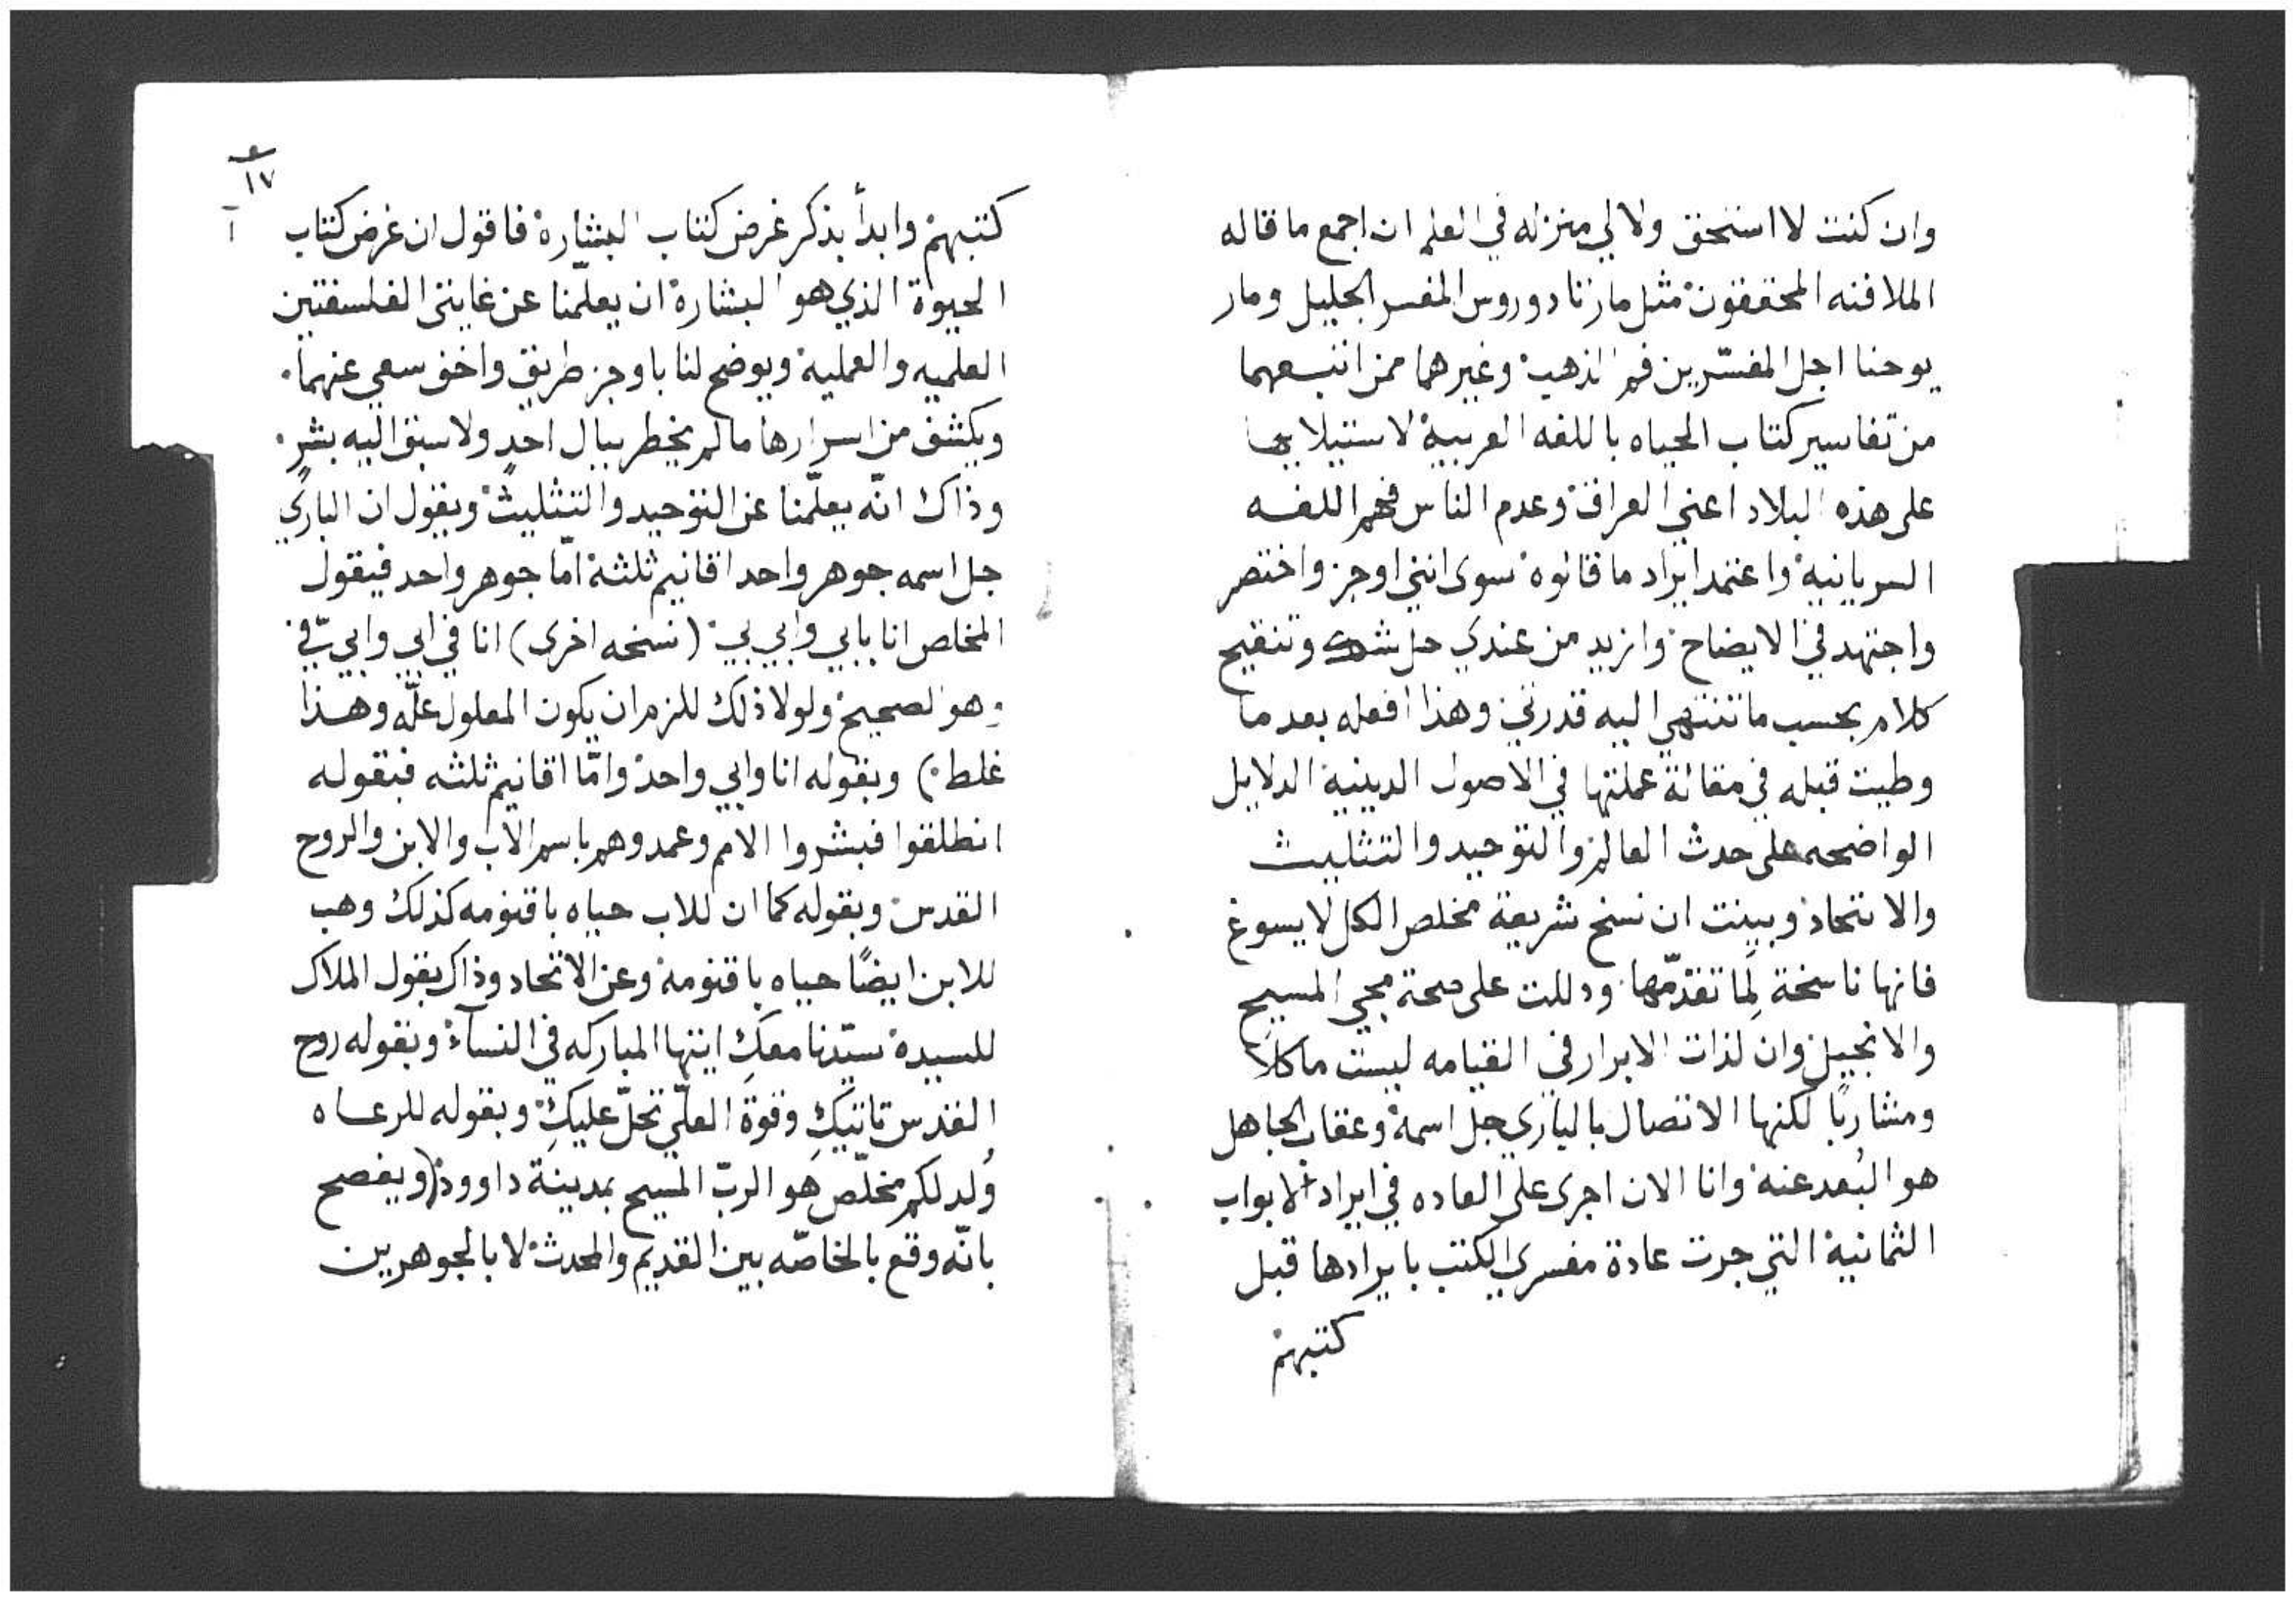 وان كنت لا استحق ولا لي منزله في العلم ان اجمع ما قاله
الملافنه المحققون مثل مار ثادوروس المفسر الجليل ومار
يوحنا اجل المفسّرين فم الذهب وغيرهما ممن اتبعهما
من تفاسير كتاب الحياه باللغه العربية لاستيلايها
على هذه البلاد اعني العراق وعدم الناس فهم اللغه
السريانية واعتمد ايراد ما قالوه سوى انني اوجز واختصر
واجتهد في الايضاح وازيد من عندي حل شك وتنقيح
كلام بحسب ما تنتهي اليه قدرتي وهذا افعله بعد ما
وطيت قبله في مقالة عملتها في الاصول الدينية الدلايل
الواضحه على حدث العالم والتوحيد والتثليث
والاتحاد وبينت ان نسخ شريعة مخلص الكل لا يسوغ
فانها ناسخة لِما تقدّمها ودللت على صحة مجي المسيح
والانجيل وان لذات الابرار في القيامه ليست ماكلًا
ومشاربًا لكنها الاتصال بالباري جل اسمه وعقاب الجاهل
هو البُعد عنه وانا الان اجرى على العاده في ايراد الابواب
الثمانية التي جرت عادة مفسري الكتب بايرادها قبل
كتبهم
١٧
كتبهم وابدأ بذكر غرض كتاب البشارة فاقول ان غرض كتاب
الحيوة الذي هو البشارة ان يعلّمنا عن غايتى الفلسفتين
العلميه والعملية ويوضح لنا باوجز طريق واخف سعي عنهما
ويكشف من اسرارها ما لم يخطر ببال احدٍ ولا سبق اليه بشر
وذاك انّه يعلّمنا عن التوحيد والتثليث ويقول ان الباري
جل اسمه جوهر واحد اقانيم ثلثة امّا جوهر واحد فيقول
المخلص انا بابي وابي بي (نسخه اخرى) انا في ابي وابي فيّ
وهو الصحيح ولولا ذلك للزم ان يكون المعلول علّه وهذا
غلط) وبقوله انا وابي واحد وامّا اقانيم ثلثه فبقوله
انطلقوا فبشروا الامم وعمدوهم باسم الاب والابن والروح
القدس وبقوله كما ان للاب حياه باقنومه كذلك وهب
للابن ايضًا حياه باقنومه وعن الاتحاد وذاك بقول الملاك
للسيدة سيّدنا معكِ ايتها المباركه في النسآء وبقوله روح
القدس تاتيكِ وقوة العلّي تحلّ عليكِ وبقوله للرعاه
وُلد لكم مخلّص هو الربّ المسيح بمدينة داوود (ويفصح
بانّه وقع بالخاصّه بين القديم والمحدث لا بالجوهرين